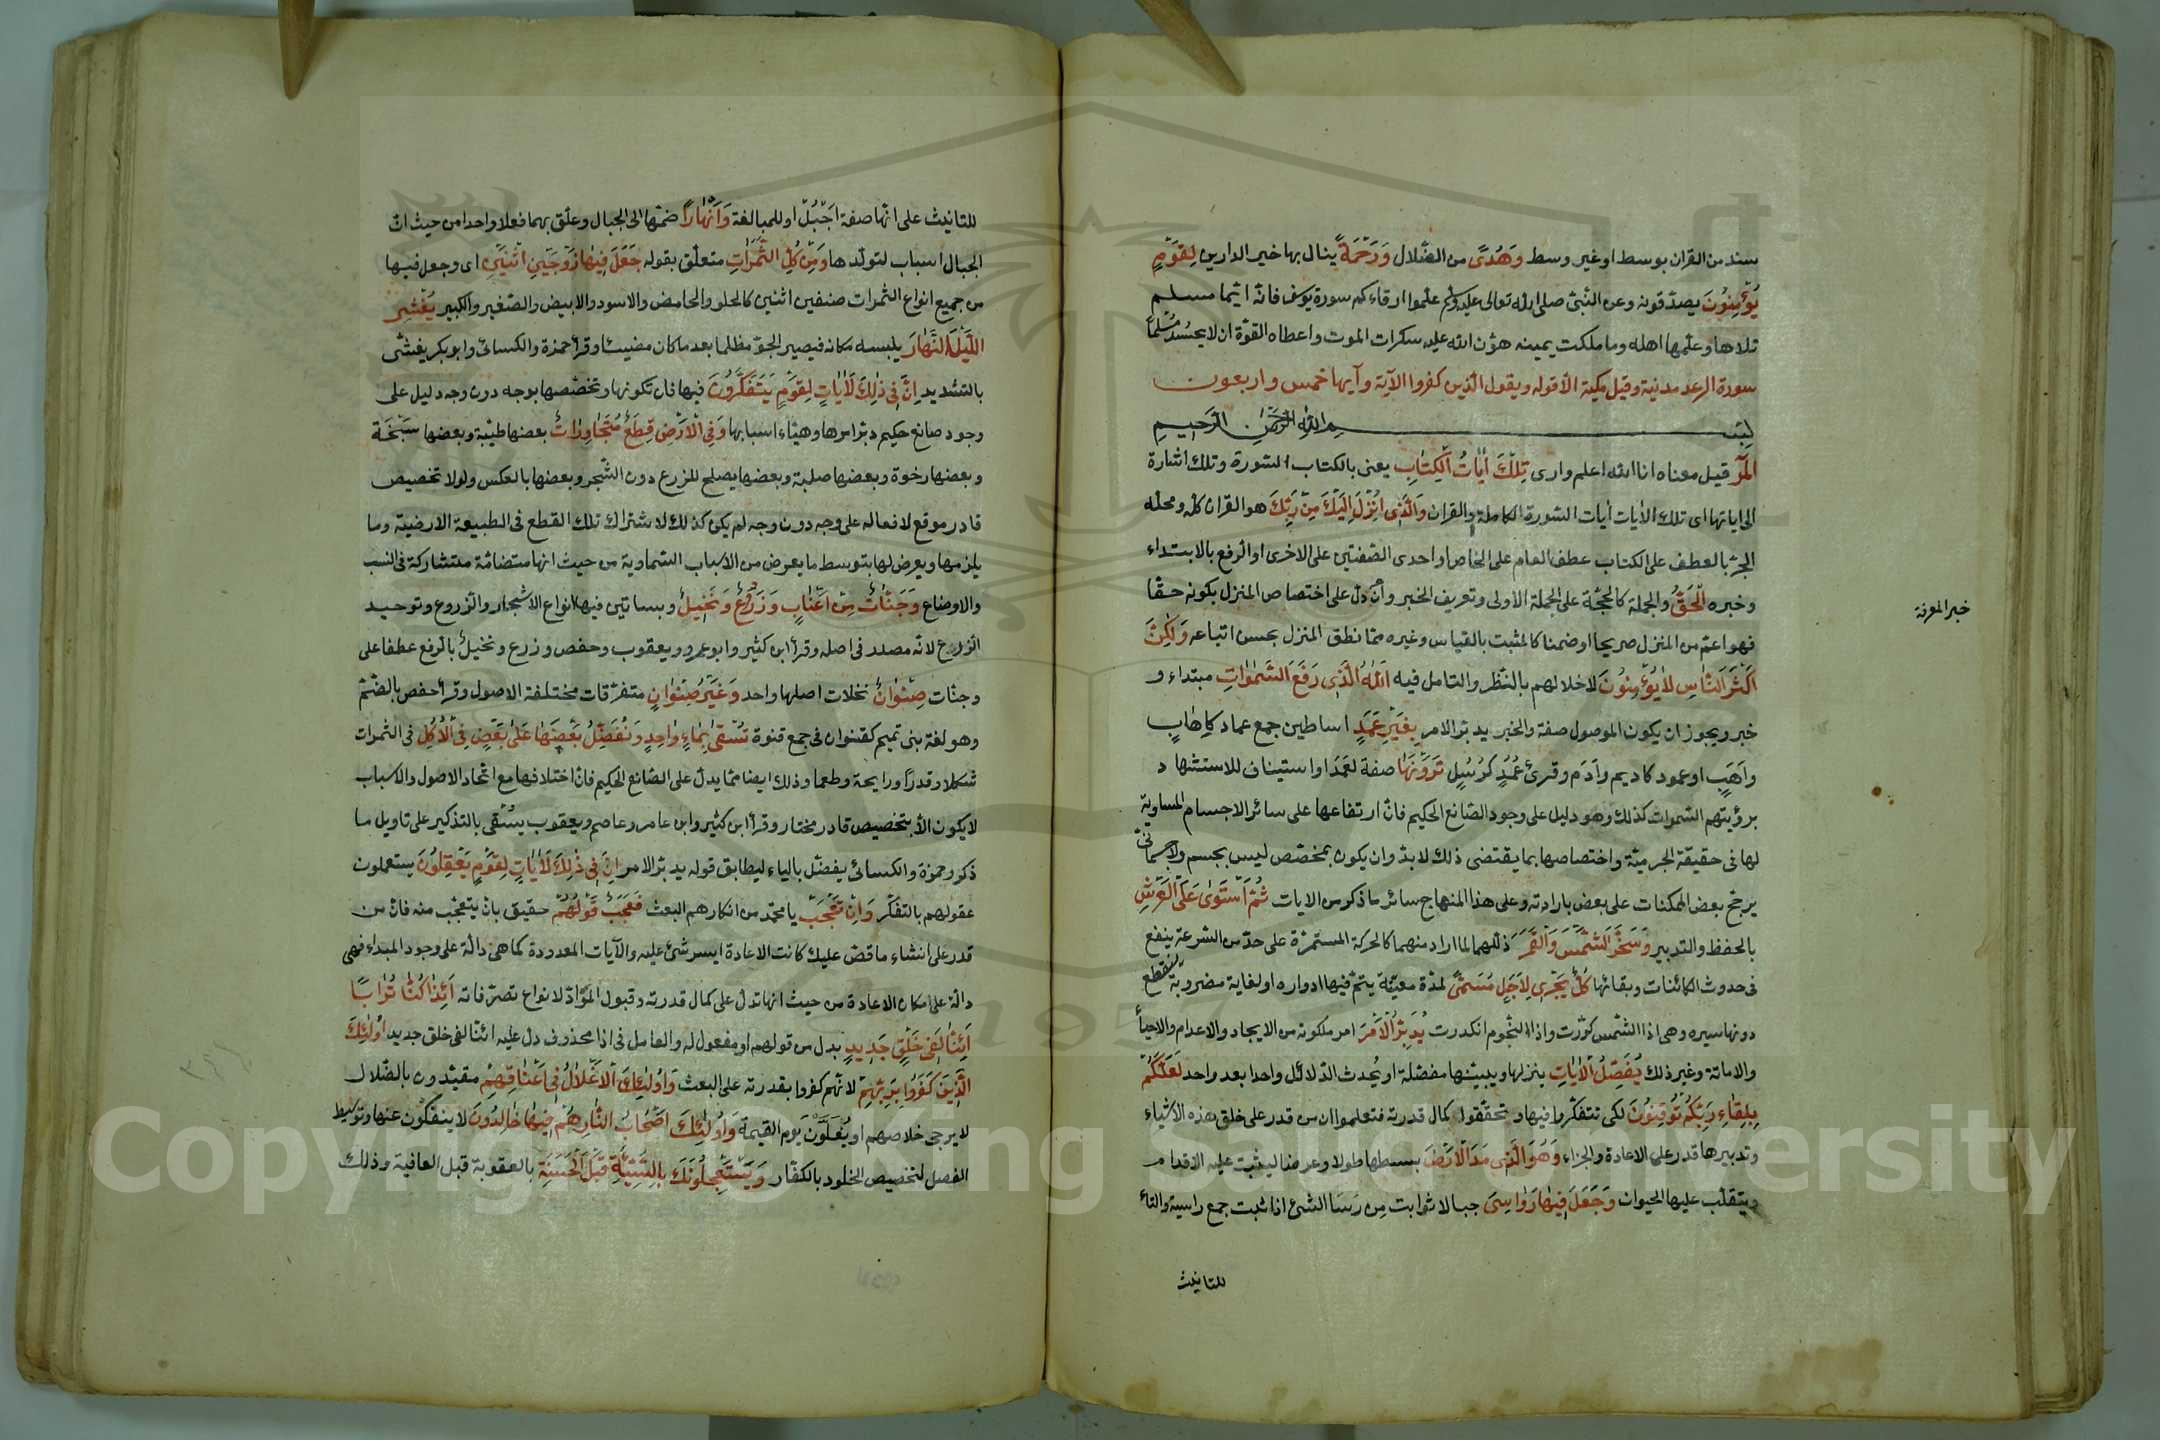 سند من القران بوسط او غير وسط وَهُدًى من الضّلال وَرَحْمَةً ينال بها خير الدارين لِقَوْمٍ
يُؤْمِنُونَ يصدّقونه وعن النّبيّ صلى الله تعالى عليه وسلم علّموا ارقاءكم سورة يوسف فانّه ايّما مسلم
تلاها وعلّمها اهله وما ملكت يمينه هوّن الله عليه سكرات الموت واعطاه القوّة ان لا يحسُد مُسْلِمًا
سورة الرعد مدنية وقيل مكية الا قوله ويقول الّذين كفروا الآية وآيها خمس واربعون
بسم الله الرّحمن الرّحيم
الٓمٓرٰ قيل معناه انا الله اعلم وارى تِلْكَ اٰيَاتُ الْكِتَابِ يعنى بالكتاب السّورة وتلك اشارة
الى اياتها اى تلك الاٰيات اٰيات السّورة الكاملة او القران وَالَّذِى اُنْزِلَ اِلَيْكَ مِنْ رَبِّكَ هو القران كلّه ومحلّه
الجرّ بالعطف على الكتاب عطف العام على الخاص او احدى الصّفتين على الاخرى او الرفع بالابتداء
وخبره الْحَقُّ والجملة كالحجّة على الجملة الاولى وتعريف الخبر وأن دلّ على اختصاص المنزل بكونه حقّا
فهو اعمّ من المنزل صريحا او ضمنا كالمثبت بالقياس وغيره ممّا نطق المنزل بحسن اتباعه وَلٰكِنَّ
اَكْثَرَ النَّاسِ لَا يُؤْمِنُونَ لاخلالهم بالنّظر والتامل فيه اَللّٰهُ الَّذِى رَفَعَ السَّمٰوَاتِ مبتداء و
خبر ويجوز ان يكون الموصول صفة والخبر يدبّر الامر بِغَيْرِ عَمَدٍ اساطين جمع عماد كاِهَابٍ
واَهَبٍ او عمود كاديم واَدَم وقرئ عُمُدٍ كرُسُلٍ تَرَوْنَهَا صفة لعَمَد او استيناف للاستشهاد
برؤيتهم السّموات كذلك وهو دليل على وجود الصّانع الحكيم فانّ ارتفاعها على سائر الاجسام المساوية
لها فى حقيقة الجرميّة واختصاصها بما يقتضى ذلك لا بدّ وان يكون بمخصّص ليس بجسم ولا جسمانىّ
يرجّح بعض الممكنات على بعض بارادته وعلى هذا المنهاج سائر ما ذكر من الايات ثُمَّ اسْتَوٰى عَلَى الْعَرْشِ
بالحفظ والتدبير وَسَخَّرَ الشَّمْسَ وَالْقَمَرَ ذلّلهما لما اراد منهما كالحركة المستمرّة على حدّ من السّرعة ينفع
فى حدوث الكائنات وبقائها كُلٌّ يَجْرِى لِاَجَلٍ مُسَمًّى لمدّة معيّنة يتمّ فيها ادواره او لغاية مضروبة ينقطع
دونها سيره وهى اذا الشّمس كوّرت واذا النّجوم انكدرت يُدَبِّرُ الْاَمْرَ امر ملكوته من الايجاد والاعدام والاحياء
والاماتة وغير ذلك يُفَصِّلُ الْاٰيَاتِ ينزلها ويبيّنها مفصّلة او يُحدث الدّلائل واحدا بعد واحد لَعَلَّكُمْ
بِلِقَاءِ رَبِّكُمْ تُوقِنُونَ لكى تتفكّروا فيها وتحقّقوا كمال قدرته فتعلموا ان من قدر على خلق هذه الاشياء
وتدبيرها قدر على الاعادة والجزاء وَهُوَ الَّذِى مَدَّ الْاَرْضَ بسطها طولا وعرضا ليثبت عليه الاقدام
ويتقلّب عليها الحيوان وَجَعَلَ فِيهَا رَوَاسِىَ جبالا ثوابت مِن رَسَا الشئ اذا ثبت جمع راسية والتاء
للتانيث
خبر المعرفة
للتانيث على انّها صفة اَجْبُلٍ او للمبالغة وَاَنْهَارًا ضمّها الى الجبال وعلّق بهما فعلا واحدا من حيث انّ
الجبال اسباب لتولّدها وَمِنْ كُلِّ الثَّمَرَاتِ متعلّق بقوله جَعَلَ فِيهَا زَوْجَيْنِ اثْنَيْنِ اى وجعل فيها
من جميع انواع الثمرات صنفين اثنين كالحلو والحامض والاسود والابيض والصّغير والكبير يُغْشِى
اللَّيْلَ النَّهَارَ يلبسه مكانه فيصير الجوّ مظلما بعد ما كان مضيئا وقرأ حمزة والكسائى وابو بكر يغشّى
بالتشديد اِنَّ فِى ذٰلِكَ لَاٰيَاتٍ لِقَوْمٍ يَتَفَكَّرُونَ فيها فان تكونها وتخصّصها بوجه دون وجه دليل على
وجود صانع حكيم دبّر امرها وهيّاء اسبابها وَفِى الْاَرْضِ قِطَعٌ مُتَجَاوِرَاتٌ بعضها طيّبة وبعضها سَبْخَة
وبعضها رخوة وبعضها صلبة وبعضها يصلح للزرع دون الشّجر وبعضها بالعكس ولولا تخصيص
قادر موقع لافعاله على وجه دون وجه لم يكن كذلك لاشتراك تلك القطع فى الطبيعة الارضيّة وما
يلزمها ويعرض لها بتوسط ما يعرض من الاسباب السّماوية من حيث انها متضامّة متشاركة فى النسب
والاوضاع وَجَنَّاتٌ مِنْ اَعْنَابٍ وَزَرْعٌ وَنَخِيلٌ وبساتين فيها انواع الاشجار والزّروع وتوحيد
الزرع لانّه مصدر فى اصله وقرأ ابن كثير وابو عمرو ويعقوب وحفص وزرع ونخيل بالرفع عطفا على
وجنّات صِنْوَانٌ نخلات اصلها واحد وَغَيْرُ صِنْوَانٍ متفرّقات مختلفة الاصول وقرأ حفص بالضّمّ
وهو لغة بنى تميم كقنوان فى جمع قنوة تُسْقٰى بِمَاءٍ وَاحِدٍ وَنُفَضِّلُ بَعْضَهَا عَلٰى بَعْضٍ فِى الْاُكُلِ فى الثمرات
شكلا وقدرًا ورايحة وطعما وذلك ايضا ممّا يدلّ على الصّانع الحكيم فانّ اختلافها مع اتّحاد الاصول والاسباب
لا يكون الا بتخصيص قادر مختار وقرأ ابن كثير وابن عامر وعاصم ويعقوب يسقى بالتذكير على تاويل ما
ذكر وحمزة والكسائى يفضّل بالياء ليطابق قوله يدبّر الامر اِنَّ فِى ذٰلِكَ لَاٰيَاتٍ لِقَوْمٍ يَعْقِلُونَ يستعملون
عقولهم بالتفكّر وَاِنْ تَعْجَبْ يا محمّد من انكارهم البعث فَعَجَبٌ قَوْلُهُمْ حقيق بانْ يتعجّب منه فانّ من
قدر على انشاء ما قصّ عليك كانت الاعادة ايسر شئ عليه والآيات المعدودة كما هى دالّة على وجود المبداء فهى
دالّة على امكان الاعادة من حيث انها تدلّ على كمال قدرته وقبول الموادّ لانواع تصرّفاته اَئِذَا كُنَّا تُرَابًا
اَئِنَّا لَفِى خَلْقٍ جَدِيدٍ بدل من قولهم او مفعول له والعامل فى اذا محذوف دلّ عليه ائنّا لفى خلق جديد اُولٰئِكَ
الَّذِينَ كَفَرُوا بِرَبِّهِمْ لانّهم كفروا بقدرته على البعث وَاُولٰئِكَ الْاَغْلَالُ فِى اَعْنَاقِهِمْ مقيّدون بالضّلال
لا يرجى خلاصهم او يُغَلّون يوم القيمة وَاُولٰئِكَ اَصْحَابُ النَّارِ هُمْ فِيهَا خَالِدُونَ لا ينفكّون عنها وتوسيط
الفصل لتخصيص الخلود بالكفّار وَيَسْتَعْجِلُونَكَ بِالسَّيِّئَةِ قَبْلَ الْحَسَنَةِ بالعقوبة قبل العافية وذلك
Copyright © King Saud University